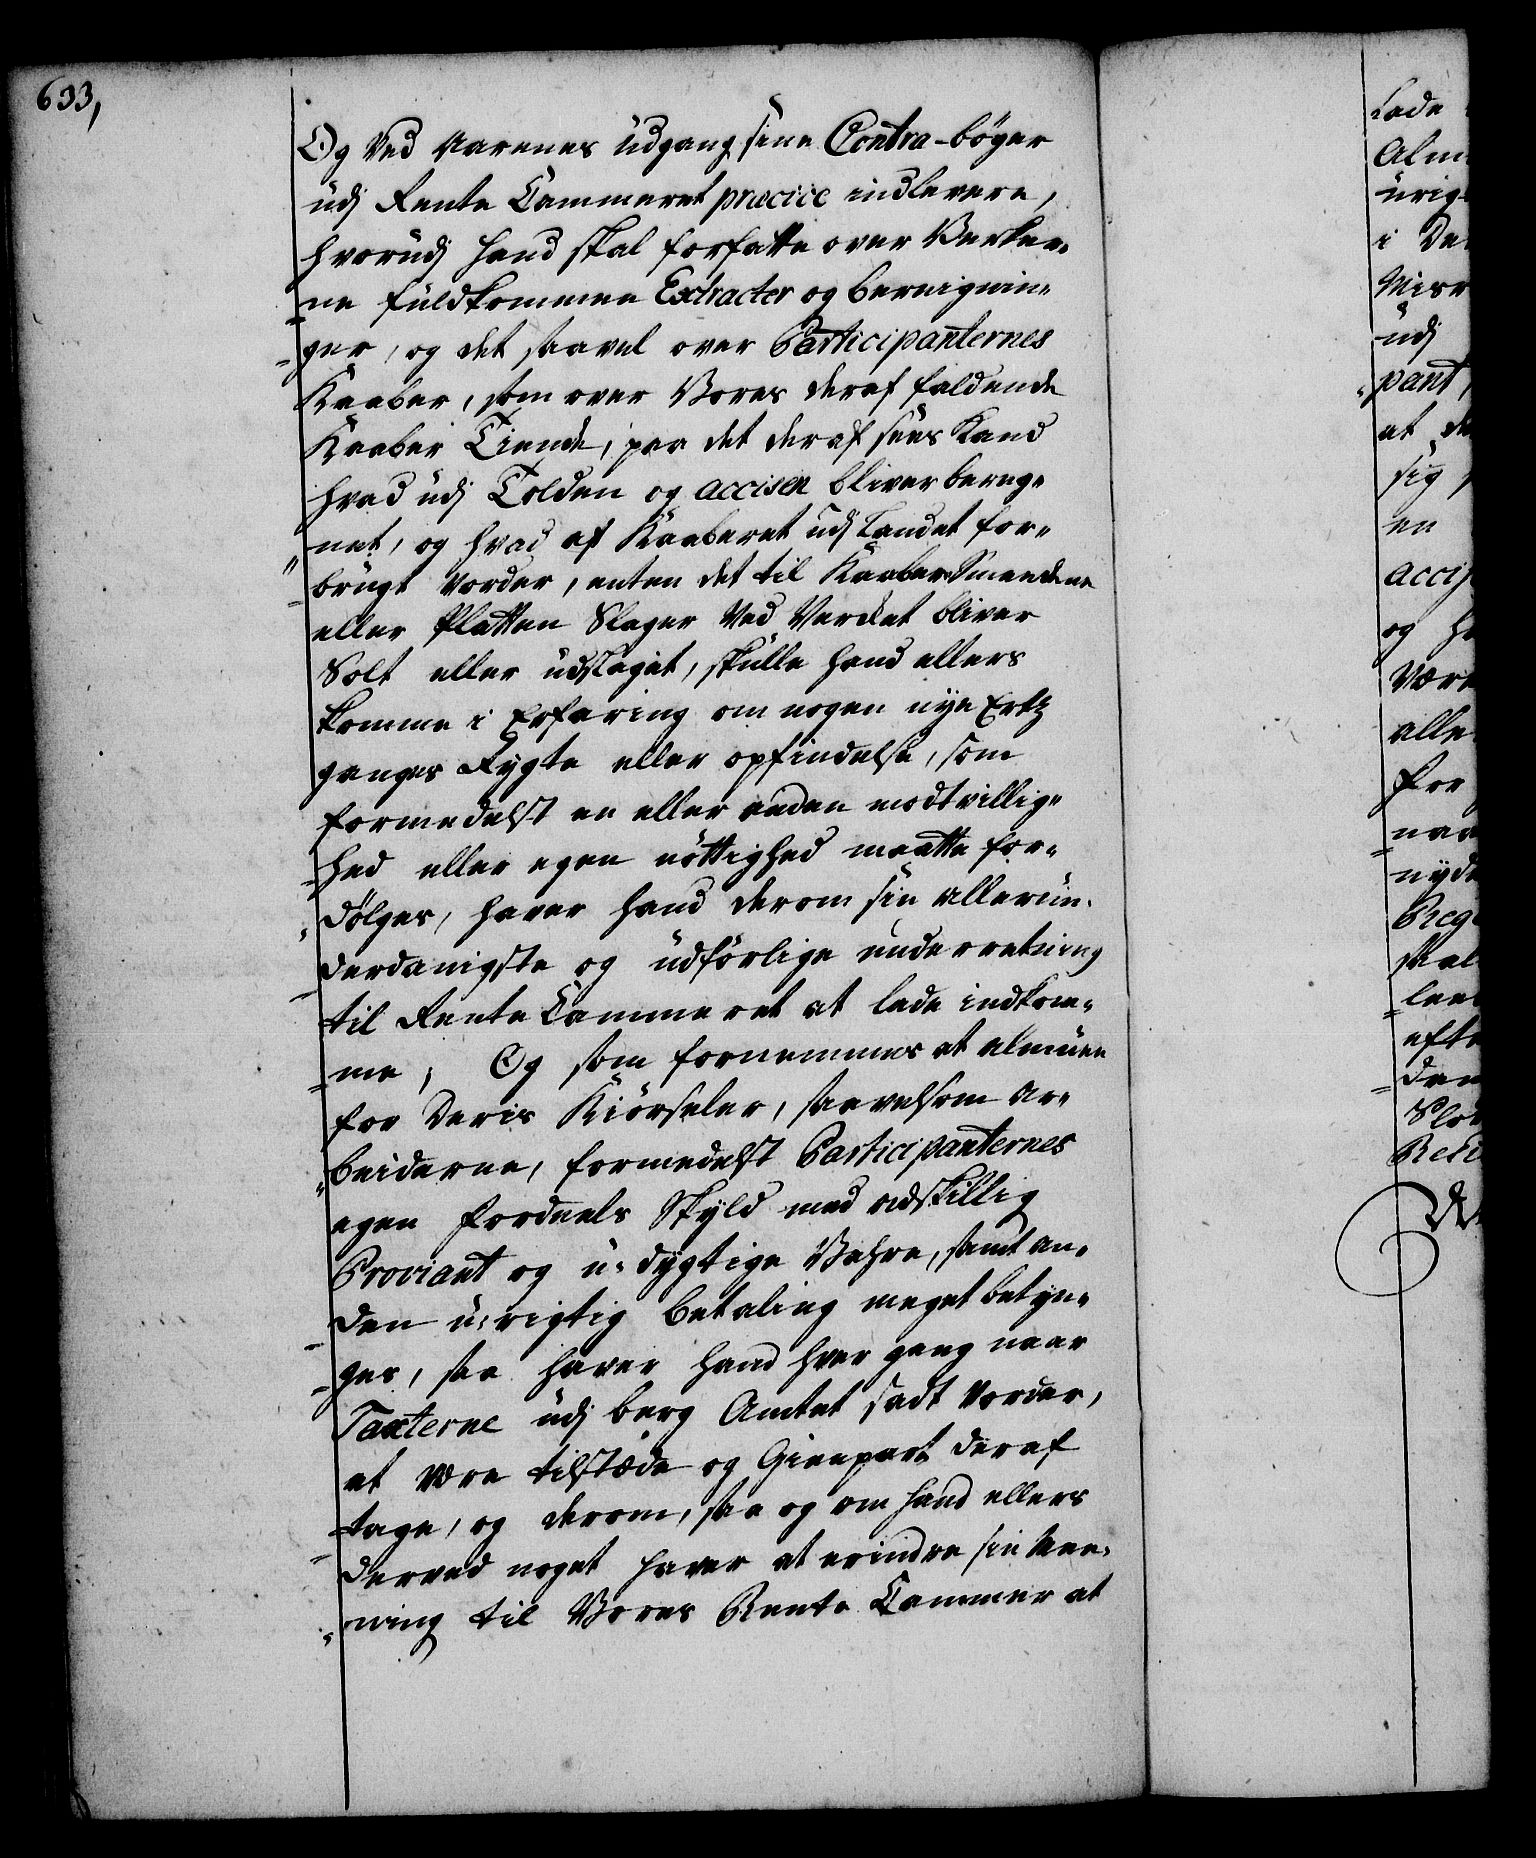 633,
Og ved Aarenes udgang sine Contra-bøger
udj Rente Cammeret præcice indlevere,
hvorudj hand skal forfatte over Verker„
„ne fuldkommen Extracter og beregnin„
„ger, og det saavel over Participanternes
Kaaber, som over Vores deraf faldende
Kaaber Tiende, paa det deraf sees Kand
hvad udj Tolden og accisen bliver bereg„
„net, og hvad af Kaaberet udj Landet for„
„brugt vorder, enten det til KaaberSmeedene
eller Platten Slager ved Verket bliver
Solt eller udslaget, skulle hand ellers
komme i Erfaring om nogen nye Ertz
ganges Rygte eller opfindelse, som
formedelst en eller anden modtvillig„
„hed eller egen nøttighed maatte for„
„dølges, haver hand derom sin allerun„
„derdanigste og udførlige underretning
til Rente Cammeret at lade indkom„
„me, Og som fornemmes at almuen
for Deris Kiørseler, saavelsom Ar„
„beiderne, formedelst Participanternes
egen fordeels Skyld med adskillig
Proviant og u-dygtige Vahre, samt an„
„den u-rigtig betaling meget betyn„
„ges, saa haver hand hver gang naar
Taxterne udj berg Amtet sadt vorder,
at være tilstæde og Gienpart deraf
tage, og derom, saa og om hand ellers
derved noget haver at erindre sin Mee„
„ning til Vores Rente Cammer at
Lade
Alm
urig
i De
Misr
udj
„pant
at de
sig
en
accis
og h
være
alle
for
naa
nyde
Reg
skal
lee
efte
den
Slot